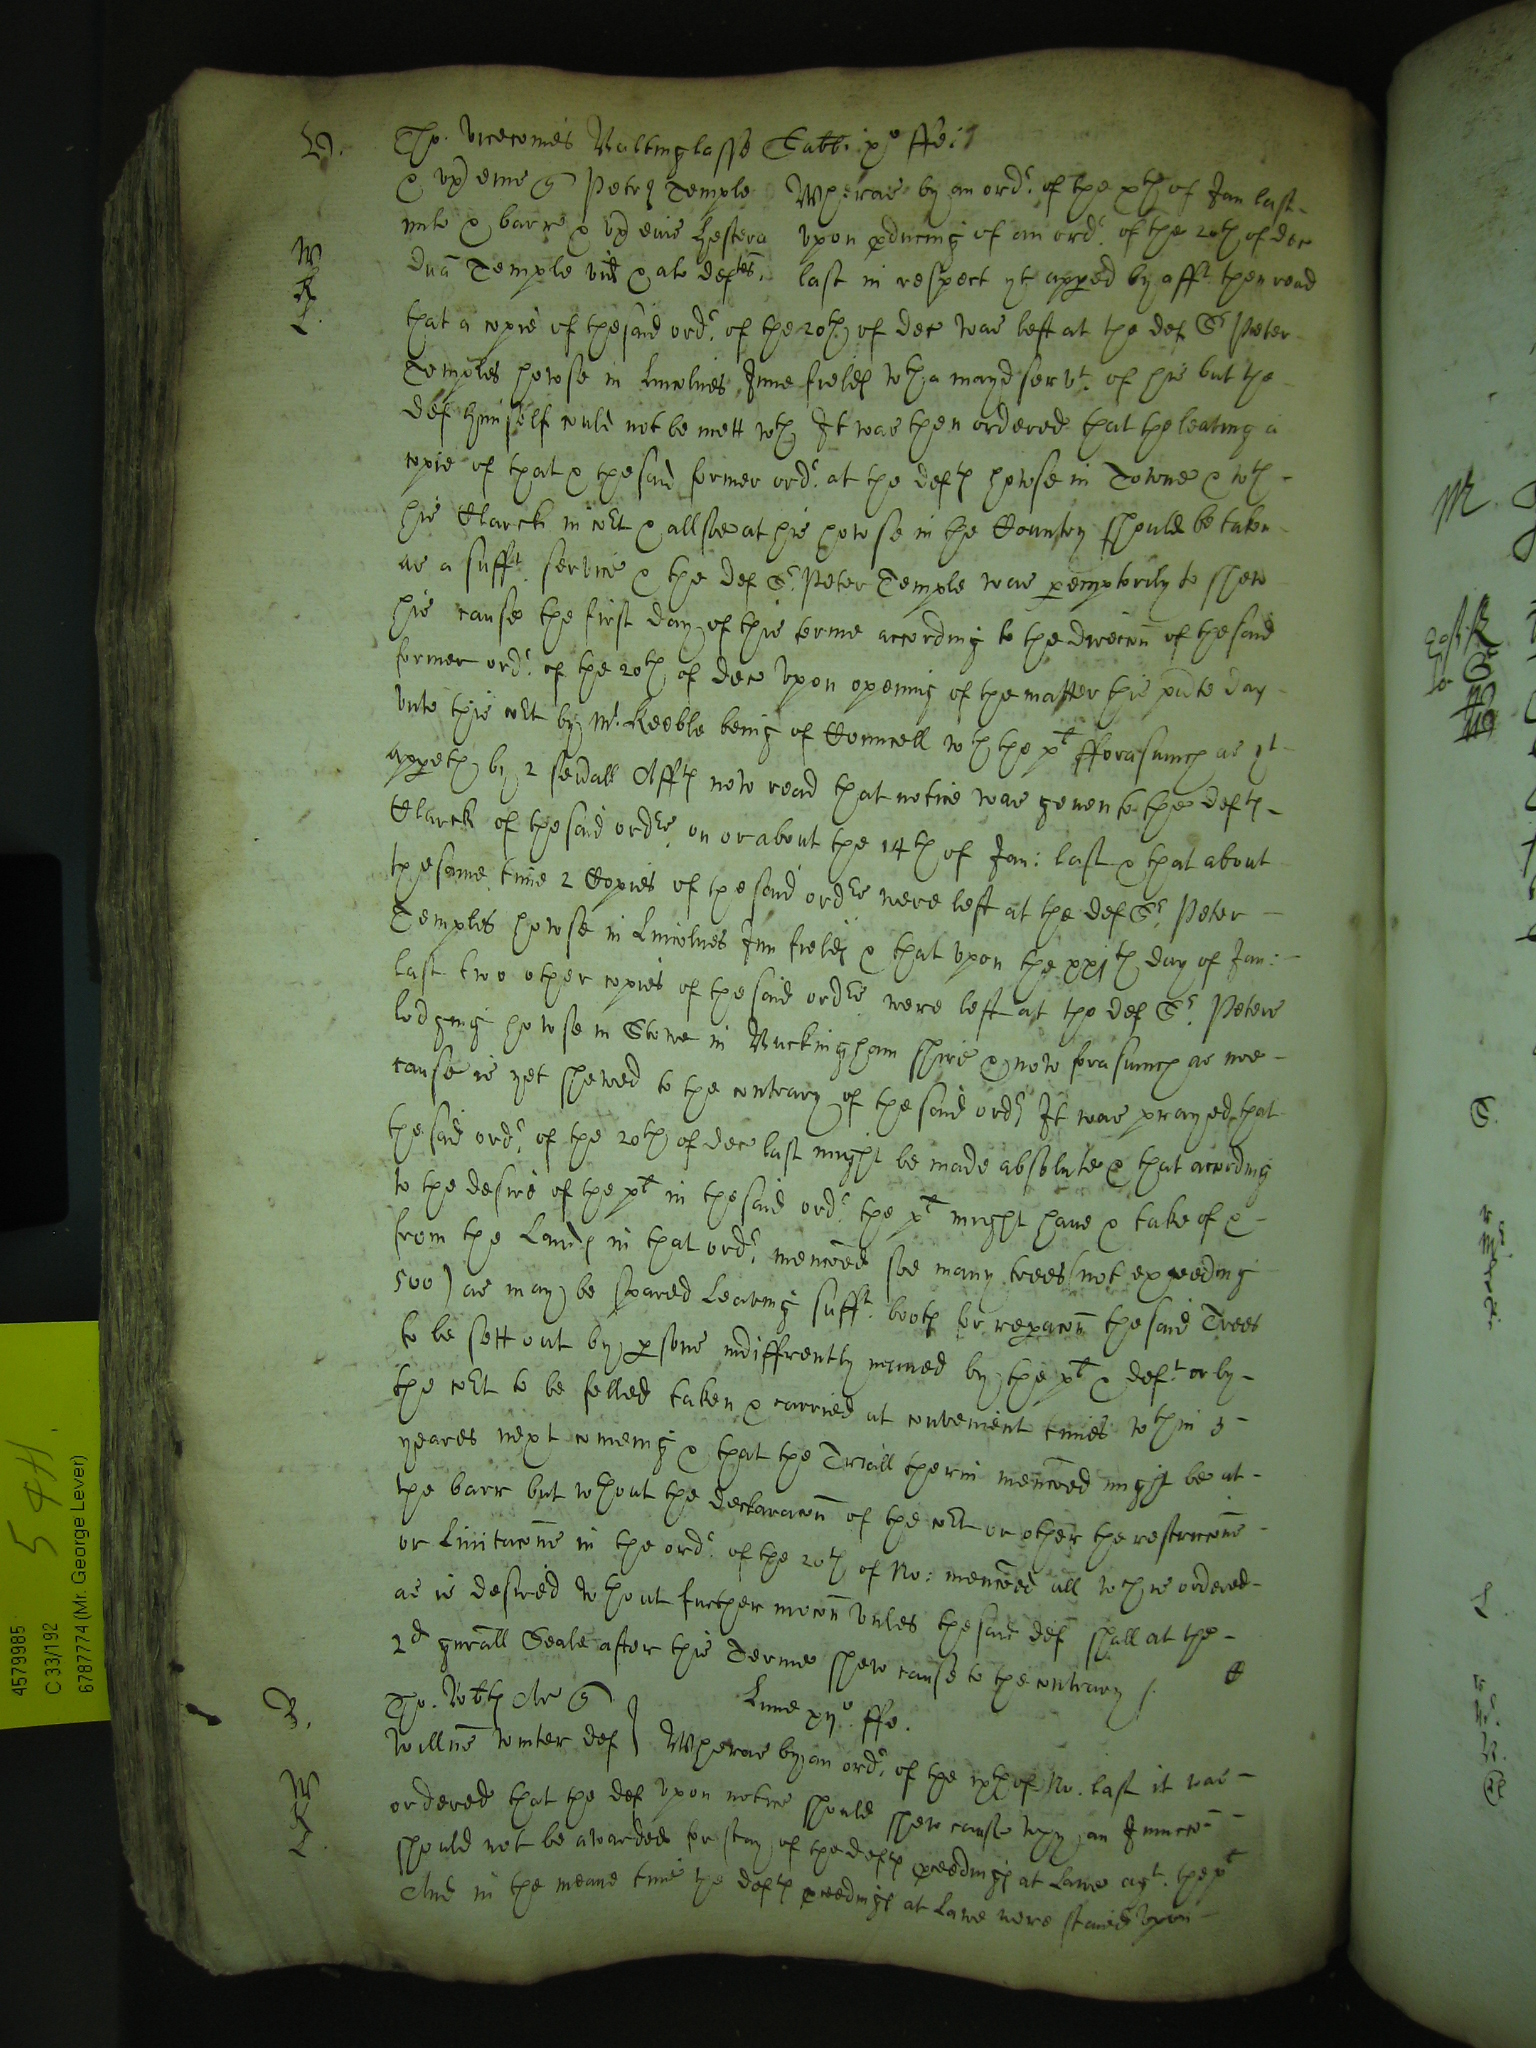 B.
Tho: vicecomes Baltinglasse Sabbi xo ffe:
& ux eius q Petrus Temple Whereas by an ordr. of the xth of Jan last
mite & barre & ux eius Hestera upon pducing of an ordr. of the 20th of dec
dna Temple vid & alo deftes. last in respect yt appeed by afft. then read
W
R
L.
that a copie of the said ordr. of the 20th of dec was left at the def Sr Peter
Temples howse in Lincolnes Inne fields wth a mayd servt. of his but the
def himself could not be mett wth It was then ordered that the leaving a
copie of that & the said former ordr. at the defts howse in Towne & wth
his Clarck in cort & allsoe at his howse in the Country should be taken
as a sufft. service & the def Sr. Peter Temple was peremptorily to shew
his cause the first day of this terme according to the direccon of the said
former ordr. of the 20th of dec Upon opening of the matter this pnte day
unto this cort by Mr. Keeble being of Councell wth the plt fforasmuch as yt
appeth by 2 seuall Affts now read that notice was geuen to the defts
Clarck of the said ordrs. on or about the 14th of Jan: last & that about
the same time 2 Copies of the said ordrs were left at the def Sr. Peter
Temples howse in Lincolnes Inn fields & that upon the xxjth day of Jan:
last two other copies of the said ordrs were left at the def Sr. Peters
lodging howse in Stowe in Buckingham shire & now forasmuch as noe
cause is yet shewed to the contrary of the said ordrs It was prayed that
the said ordr. of the 20th of dec last might be made absolute & that according
to the desire of the plt in the said ordr. the plt might haue & take of &
from the Lands in that ordr. menconed soe many trees (not exceeding
500) as may be spared leaving sufft. boots for repacon the said Trees
to be sett out by psons indiffrently named by the plt & deft or by
the cort to be felled taken & carried at convenient times wthin 3
yeares next comeing & that the Triall therin menconed might be at
the barr but wthout the declaracon of the cort or other the restriccons
or Limitacons in the ordr. of the 20th of No: menconed all wch is ordered
as is desired wthout further mocon unles the said def shall at the
2d gnrall Seale after this Terme shew cause to the contrary /.
B.
Tho. Ar q
Willms Winter def
Lune xijo. ffe.
Whereas by an ordr. of the ixth of No. last it was
W
R
L.
ordered that the def upon notice should shew cause why an Iniuccon
should not be awarded for stay of the defts pceedings at Lawe agt. the plt
And in the meane time the defts pceedings at Lawe were staied Upon
4579985
C 33/192
6787774 (Mr. George Lever)
5 of 11.